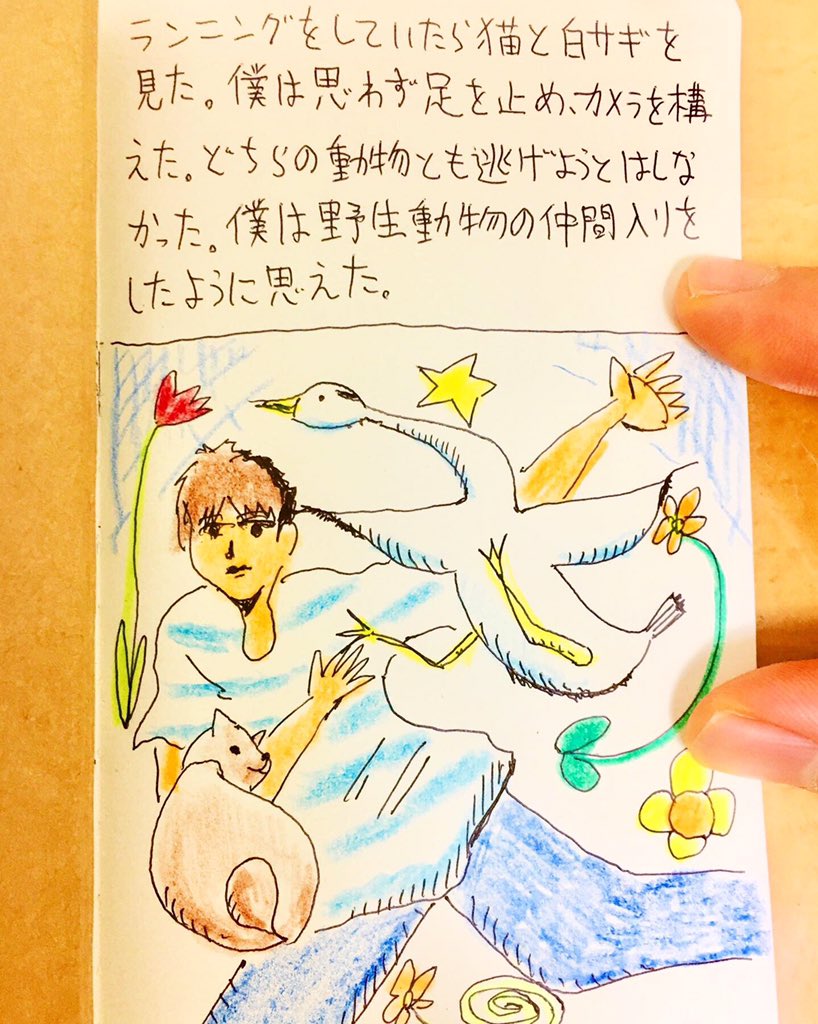 ランニングをしていたら猫と白サギを
見た。僕は思わず足を止め、カメラを構
えた。どちらの動物とも逃げようとはしな
かった。僕は野生動物の仲間入りを
したように思えた。